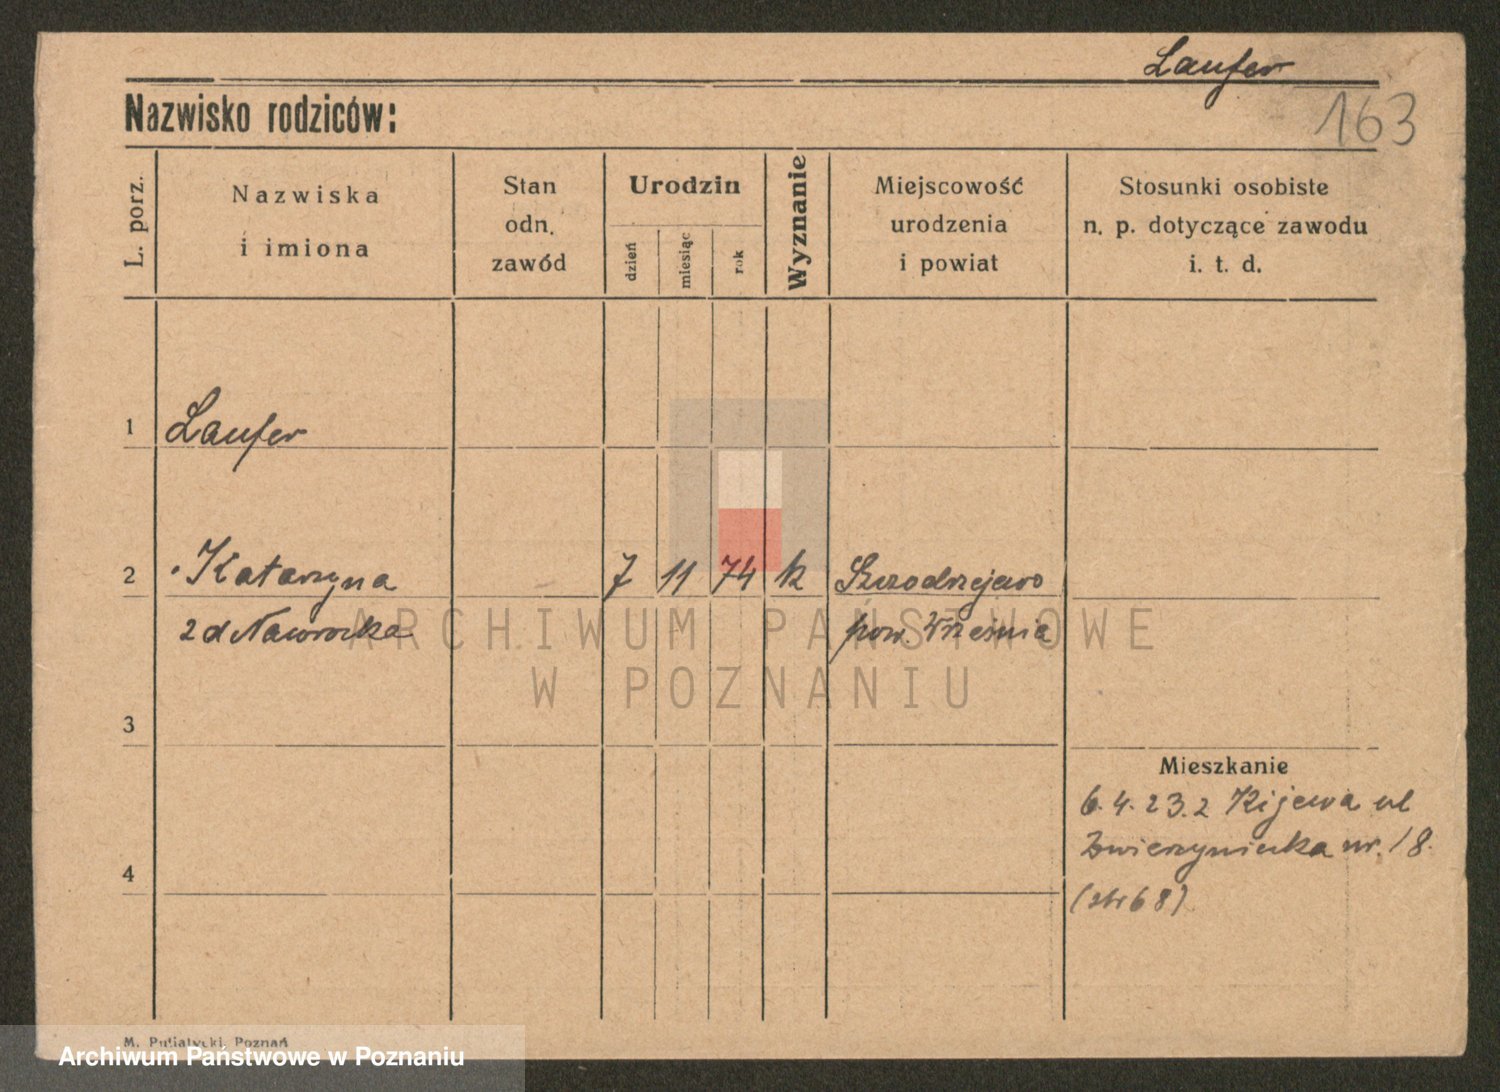 Laufer
163
Nazwisko rodziców:
L. porz.
Nazwiska
i imiona
Stan
odn.
zawód
Urodzin
dzień
miesiąc
rok
Wyznanie
Miejscowość
urodzenia
i powiat
Stosunki osobiste
n. p. dotyczące zawodu
i. t. d.
1 Laufer
2 Katarzyna 7 11 74 k Szczodrzejewo
zd Nawrocka pow. Września
ARCHIWUM PAŃSTWOWE
W POZNANIU
3
Mieszkanie
6.4.23.z Kijewa ul
Zwierzyniecka nr. 18.
4
(str 68)
M. Putiatycki, Poznań
Archiwum Państwowe w Poznaniu